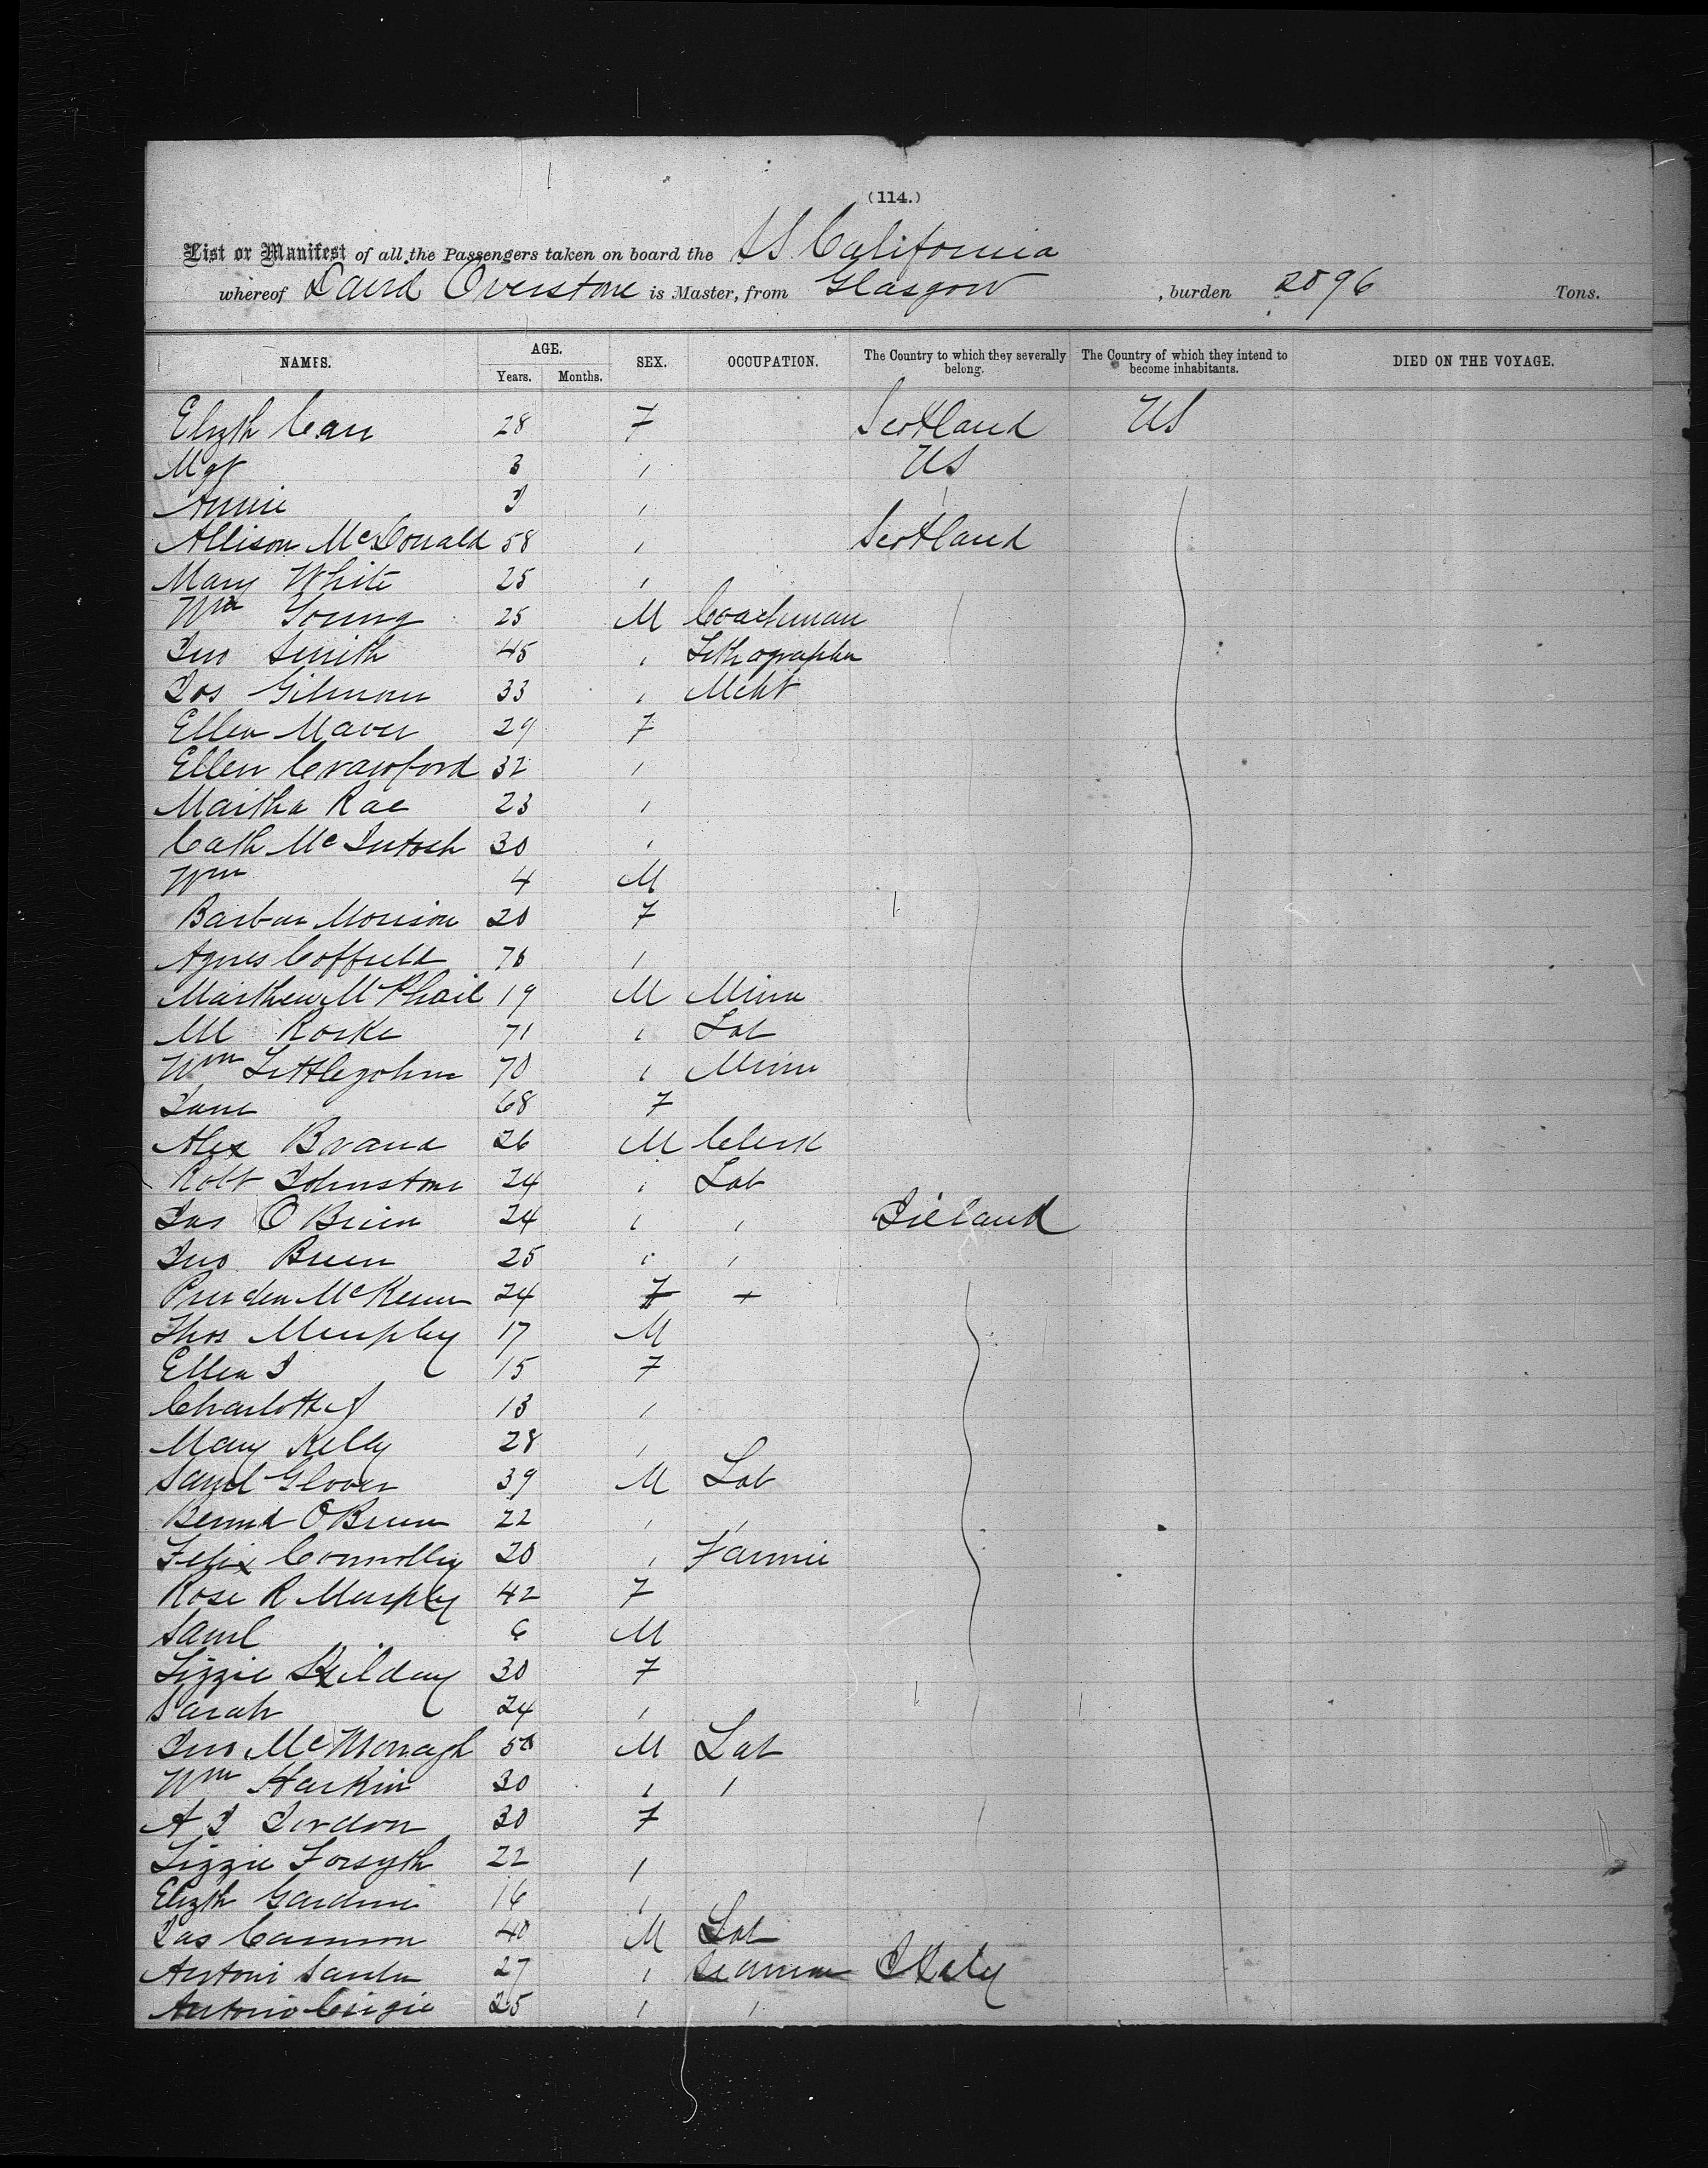 (114.)
List or Manifest of all the Passengers taken on board the SS. California
whereof David Overstone is Master, from Glasgow, burden 2096 Tons.
NAMES. AGE. Years. Months. SEX. OCCUPATION. The Country to which they severally belong. The Country of which they intend to become inhabitants. DIED ON THE VOYAGE.
Elizth Carr 28 F Scotland US
Mgt 3 " US
Annie " "
Allison McDonald 58 " Scotland
Mary White 25 "
Wm Young 25 M Coachman
Jno Smith 45 " Lithographer
Jos Gilmour 33 " Mcht
Ellen Maver 29 F
Ellen Crawford 32 "
Martha Rae 23 "
Cath McIntosh 30 "
Wm 4 M
Barbar Morison 20 F
Agnes Coffield "
Matthew McPhail 19 M Miner
M Rorke 71 " Lab
Wm Littlejohn 70 " Miner
Jane 68 F
Alex Brand 26 M Clerk
Robt Johnstone 24 " Lab
Jas O'Brien 24 " " Ireland
Jno Breen 25 " "
McKeown 24 F
Thos Murphy 17 M
Ellen J 15 F
Charlotte J 13 "
Mary Kelly 28 "
Saml Glover 39 M Lab
Bernd O'Brien 22 " "
Felix Connolly 20 " Farmer
Rose R Murphy 42 F
Saml 6 M
Lizzie Kilday 30 F
Sarah 24 "
Jno McMonagh 50 M Lab
Wm Harkin 30 " "
A J Jordon 30 F
Lizzie Forsyth 22 "
Elizth Gardner 16 "
Jas Cannon 40 M Lab
Antoni 27 " Seaman Italy
Antonio 25 " "